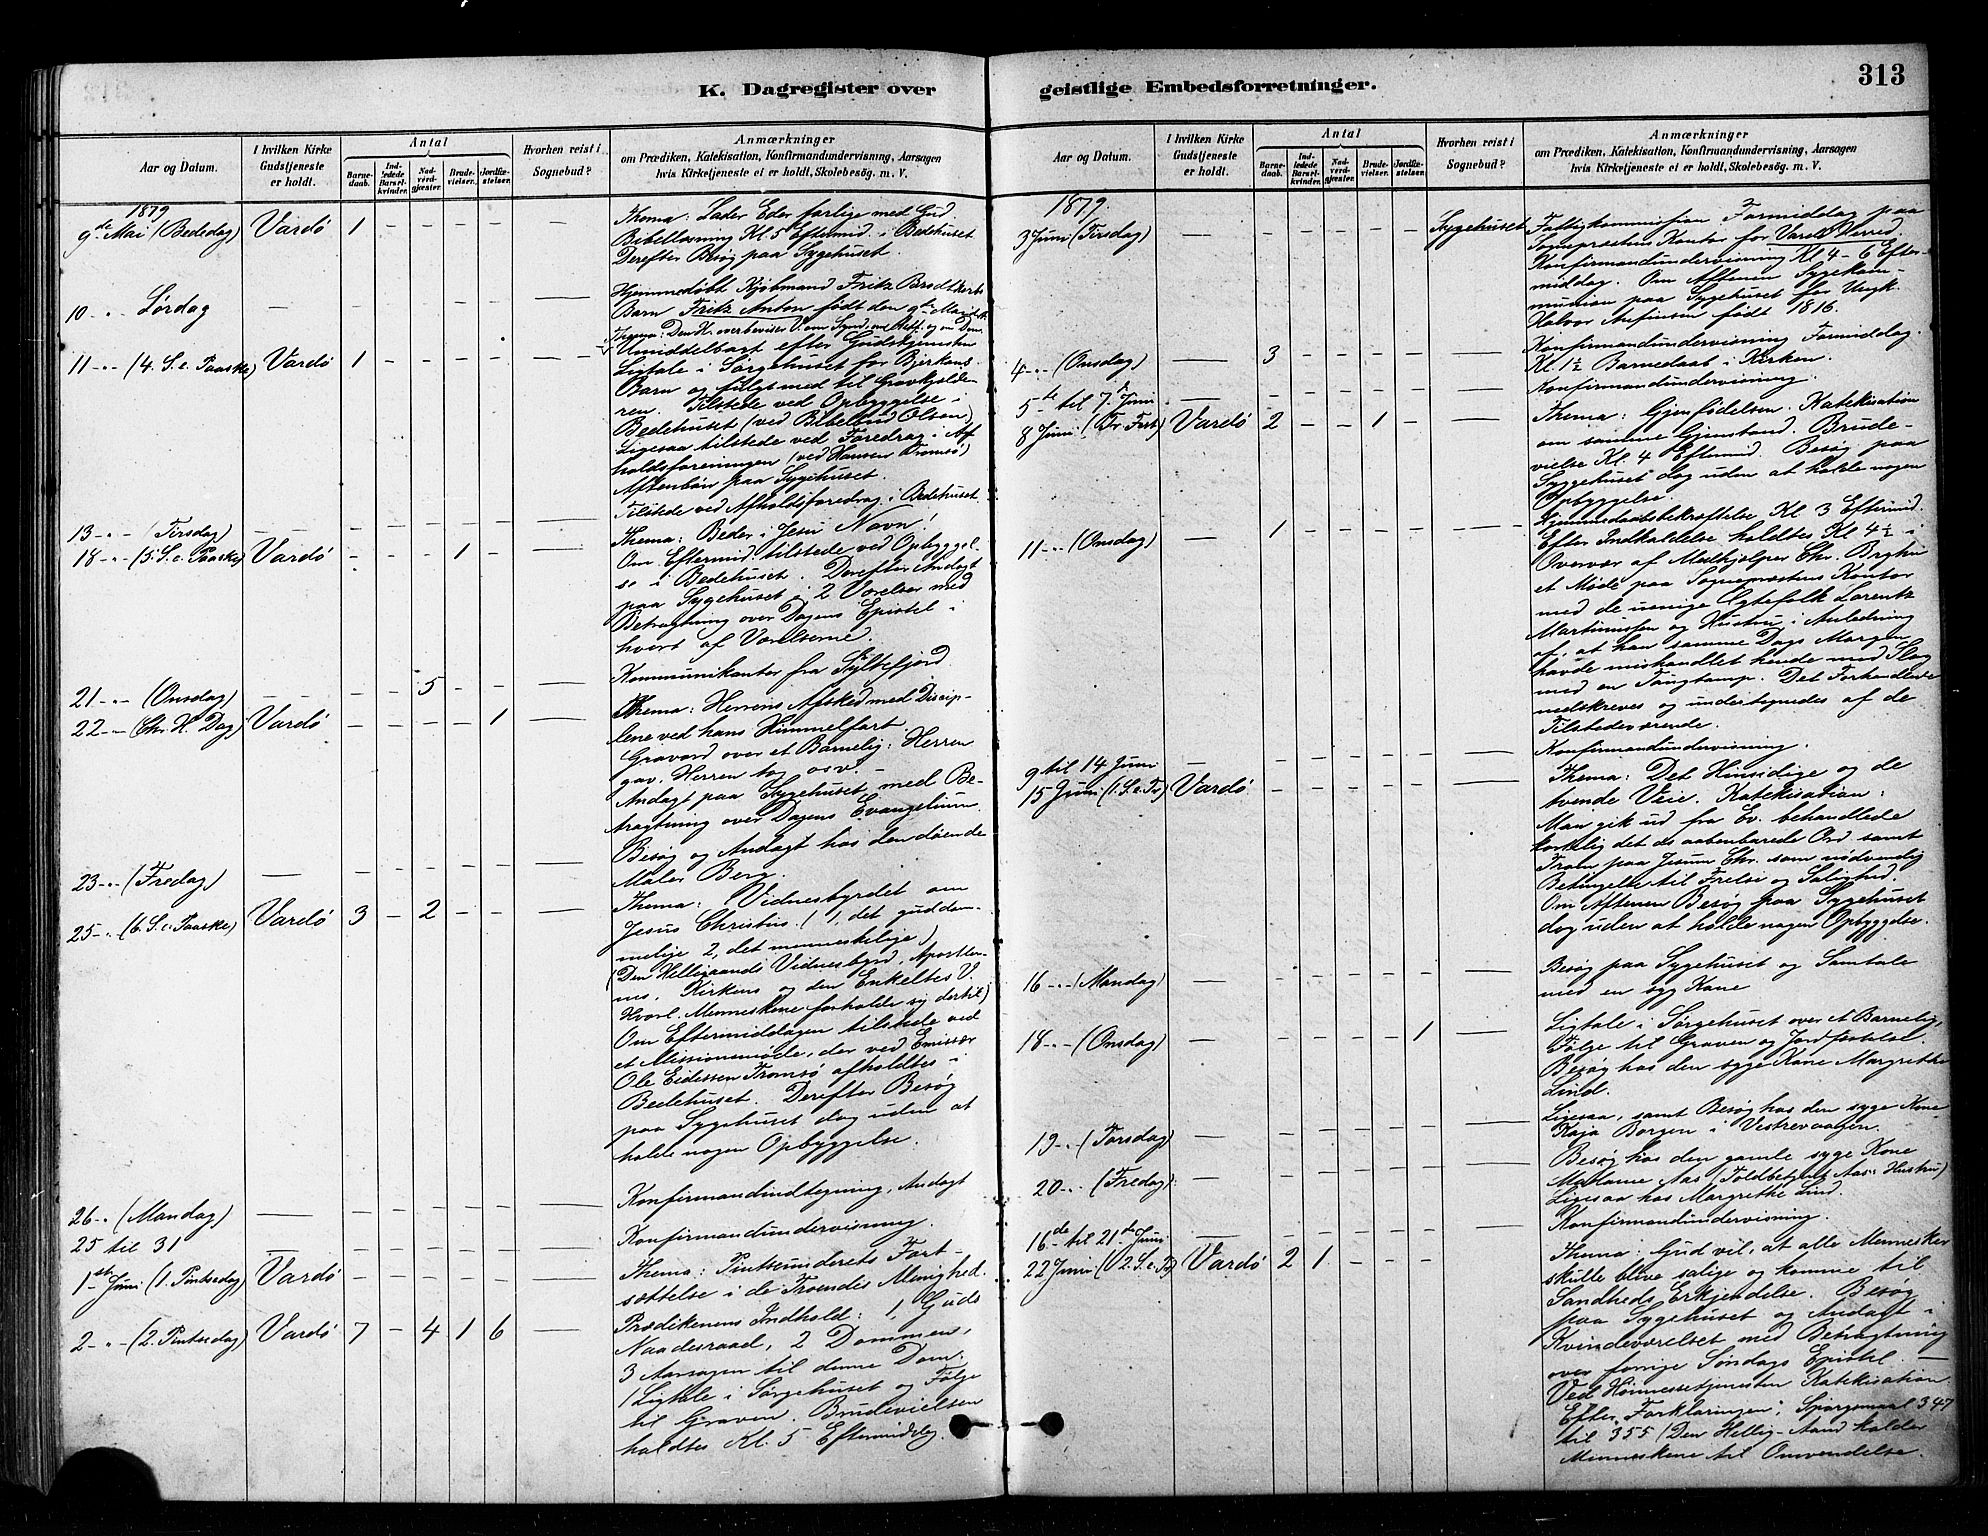 K. Dagregister over
Aar og Datum.
I hvilken Kirke Gudstjeneste er holdt.
Antal
Barnedaab.
Indledede Barselkvinder.
Nadverdgjester.
Brudevielser.
Jordfæstelser.
Hvorhen reist i Sognebud?
Anmærkninger
om Prædiken, Katekisation, Konfirmandundervisning, Aarsagen
hvis Kirketjeneste ei er holdt, Skolebesøg m. V.
1879
9de Mai (Bededag) Vardø 1 – – – – — Thema: Lader Eder forlige med Gud.
Bibellæsning Kl. 5 Eftermid. i Bedehuset
Derefter Besøg paa Sygehuset.
10 -"- Lørdag — – – – – – — Hjemmedøbt Kjøbmand Fritz Brodtkorbs
Barn Fritz Anton født den 9de
11 -"- (4. S. e. Paaske) Vardø 1 – – – – — Thema: Den H. overbeviser V. om Synd, om Retf. og om Dom.
Umiddelbart efter Gudstjenesten
Ligtale i Sørgehuset for
Barn og fulgt med til Gravkjelde-
ren. Tilstede ved Opbyggelse i
Bedehuset (ved Bibelbud Olsen)
Ligesaa tilstede ved Foredrag i Af
holdsforeningen (ved Hansen Tromsø)
Aftenbøn paa Sygehuset.
13 -"- (Tirsdag) – – – – – – — Tilstede ved Afholdsforedrag i Bedehuset
18 -"- (5. S. e. Paaske) Vardø – – – 1 – — Thema: Beder i Jesu Navn!
Om Eftermid. tilstede ved Opbyggel-
se i Bedehuset. Derefter Andagt
paa Sygehuset i 2 Værelser med
Betragtning over Dagens Epistel i
hvert af Værelserne.
21 -"- (Onsdag) – – – 5 – – — Kommunikanter fra Syltefjord.
22 -"- (Chr. H. Dag) Vardø – – – – 1 — Thema: Herrens Afsked med Discip-
lene ved hans Himmelfart.
Gravord over et Barnelig: Herren
gav, Herren tog osv. -
Andagt paa Sygehuset med Be-
tragtning over Dagens Evangelium.
23 -"- (Fredag) — – – – – – — Besøg og Andagt hos den døende
Maler Berg.
25 -"- (6. S. e. Paaske) Vardø 3 – 2 – – — Thema: Vidnesbyrdet om
Jesus Christus (1, det guddom-
melige 2, det menneskelige)
(Den Helligaands Vidnesbyrd, Apostler-
nes, Kirkens og den Enkeltes V.
Hvorl. Menneskene forholde sig dertil)
Om Eftermiddagen tilstede ved
et Missionsmøde, der ved Emissær
Ole Eidessen Tromsø afholdtes i
Bedehuset. Derefter Besøg
paa Sygehuset dog uden at
holde nogen Opbyggelse.
26 -"- (Mandag) — – – – – – — Konfirmandindtegning, Andagt
25 til 31 — – – – – – — Konfirmandundervisning.
1ste Juni (1. Pintsedag) Vardø – – – – – — Thema: Pintseunderets Fort-
sættelse i de Troendes Menighed.
2 -"- (2. Pintsedag) Vardø 7 – 4 1 6 — Prædikenens Indhold: 1, Guds
Naadesraad, 2 Dommen,
3 Aarsagen til denne Dom.
1 Ligtale i Sørgehuset og Følge
til Graven. Brudevielsen
holdtes Kl. 5 Eftermiddag.
geistlige Embedsforretninger.
313
Aar og Datum.
I hvilken Kirke Gudstjeneste er holdt.
Antal
Barnedaab.
Indledede Barselkvinder.
Nadverdgjester.
Brudevielser.
Jordfæstelser.
Hvorhen reist i Sognebud?
Anmærkninger
om Prædiken, Katekisation, Konfirmandundervisning, Aarsagen
hvis Kirketjeneste ei er holdt, Skolebesøg m. V.
1879.
3 Juni (Tirsdag) — – – – – – Sygehuset Fattigkommission Formiddag paa
Sognepræstens Kontor for Vardø Herred.
Konfirmandundervisning Kl 4 - 6 Efter-
middag. Om Aftenen Sygekom-
munion paa Sygehuset for Ungk.
Halvor Anfinsen født 1816.
4 -"- (Onsdag) — 3 – – – – — Konfirmandundervisning Formiddag.
Kl. 1½ Barnedaab i Kirken.
5te til 7. Juni — – – – – – — Konfirmandundervisning.
8 Juni (Tr. Fest) Vardø 2 – – 1 – — Thema: Gjenfødelsen. Katekisation
om samme Gjenstand. Brude-
vielse Kl. 4 Eftermid. Besøg paa
Sygehuset dog uden at holde nogen
Opbyggelse.
11 -"- (Onsdag) — 1 – – – – — Hjemmedaabsbekræftelse Kl 3 Eftermid.
Efter Indkaldelse holdtes Kl 4½ i
Overvær af Medhjelper Chr.
et Møde paa Sognepræstens Kontor
med de uenige Egtefolk Lorentz
Martinussen og Hustru i Anledning
af, at han samme Dags Morgen
havde mishandlet hende med Slag
med en Tougtamp. Det Forhandlede
nedskreves og undertegnedes af de
Tilstedeværende.
9 til 14 Juni — – – – – – — Konfirmandundervisning.
15 Juni (1. S. e. Tr) Vardø – – – – – — Thema: Det Hinsidige og de
tvende Veie. Katekisation:
Man gik ud fra Ev. behandlede
kortelig det os aabenbarede Ord samt
Troen paa Jesum Chr. som nødvendig
Betingelse til Frelse og Salighed.
Om Aftenen Besøg paa Sygehuset
dog uden at holde nogen Opbyggelse.
16 -"- (Mandag) — – – – – – — Besøg paa Sygehuset og Samtale
med en syg Kone
18 -"- (Onsdag) — – – – – 1 — Ligtale i Sørgehuset over et Barnelig,
Følge til Graven og Jordfæstelse.
Besøg hos den syge Kone Margrethe
Lind.
19 -"- (Torsdag) — – – – – – — Ligesaa, samt Besøg hos den syge Kone
Kaja Borgen i Vestrevaagen.
20 -"- (Fredag) — – – – – – — Besøg hos den gamle syge Kone
Madame Aas (Toldbetjent Aas' Hustru)
Ligesaa hos Margrethe Lind.
16de til 21de Juni — – – – – – — Konfirmandundervisning.
22 Juni (2. S. e. Tr) Vardø 2 1 – – – — Thema: Gud vil, at alle Mennesker
skulle blive salige og komme til
Sandheds Erkjendelse. Besøg
paa Sygehuset og Andagt i
Kvindeværelset med Betragtning
over forrige Søndags Epistel. —
Ved Høimessetjenesten Katekisation
Efter Forklaringen: Spørgsmaal 347
til 355 (Den Hellig-Aand kalder
Menneskene til Omvendelse.